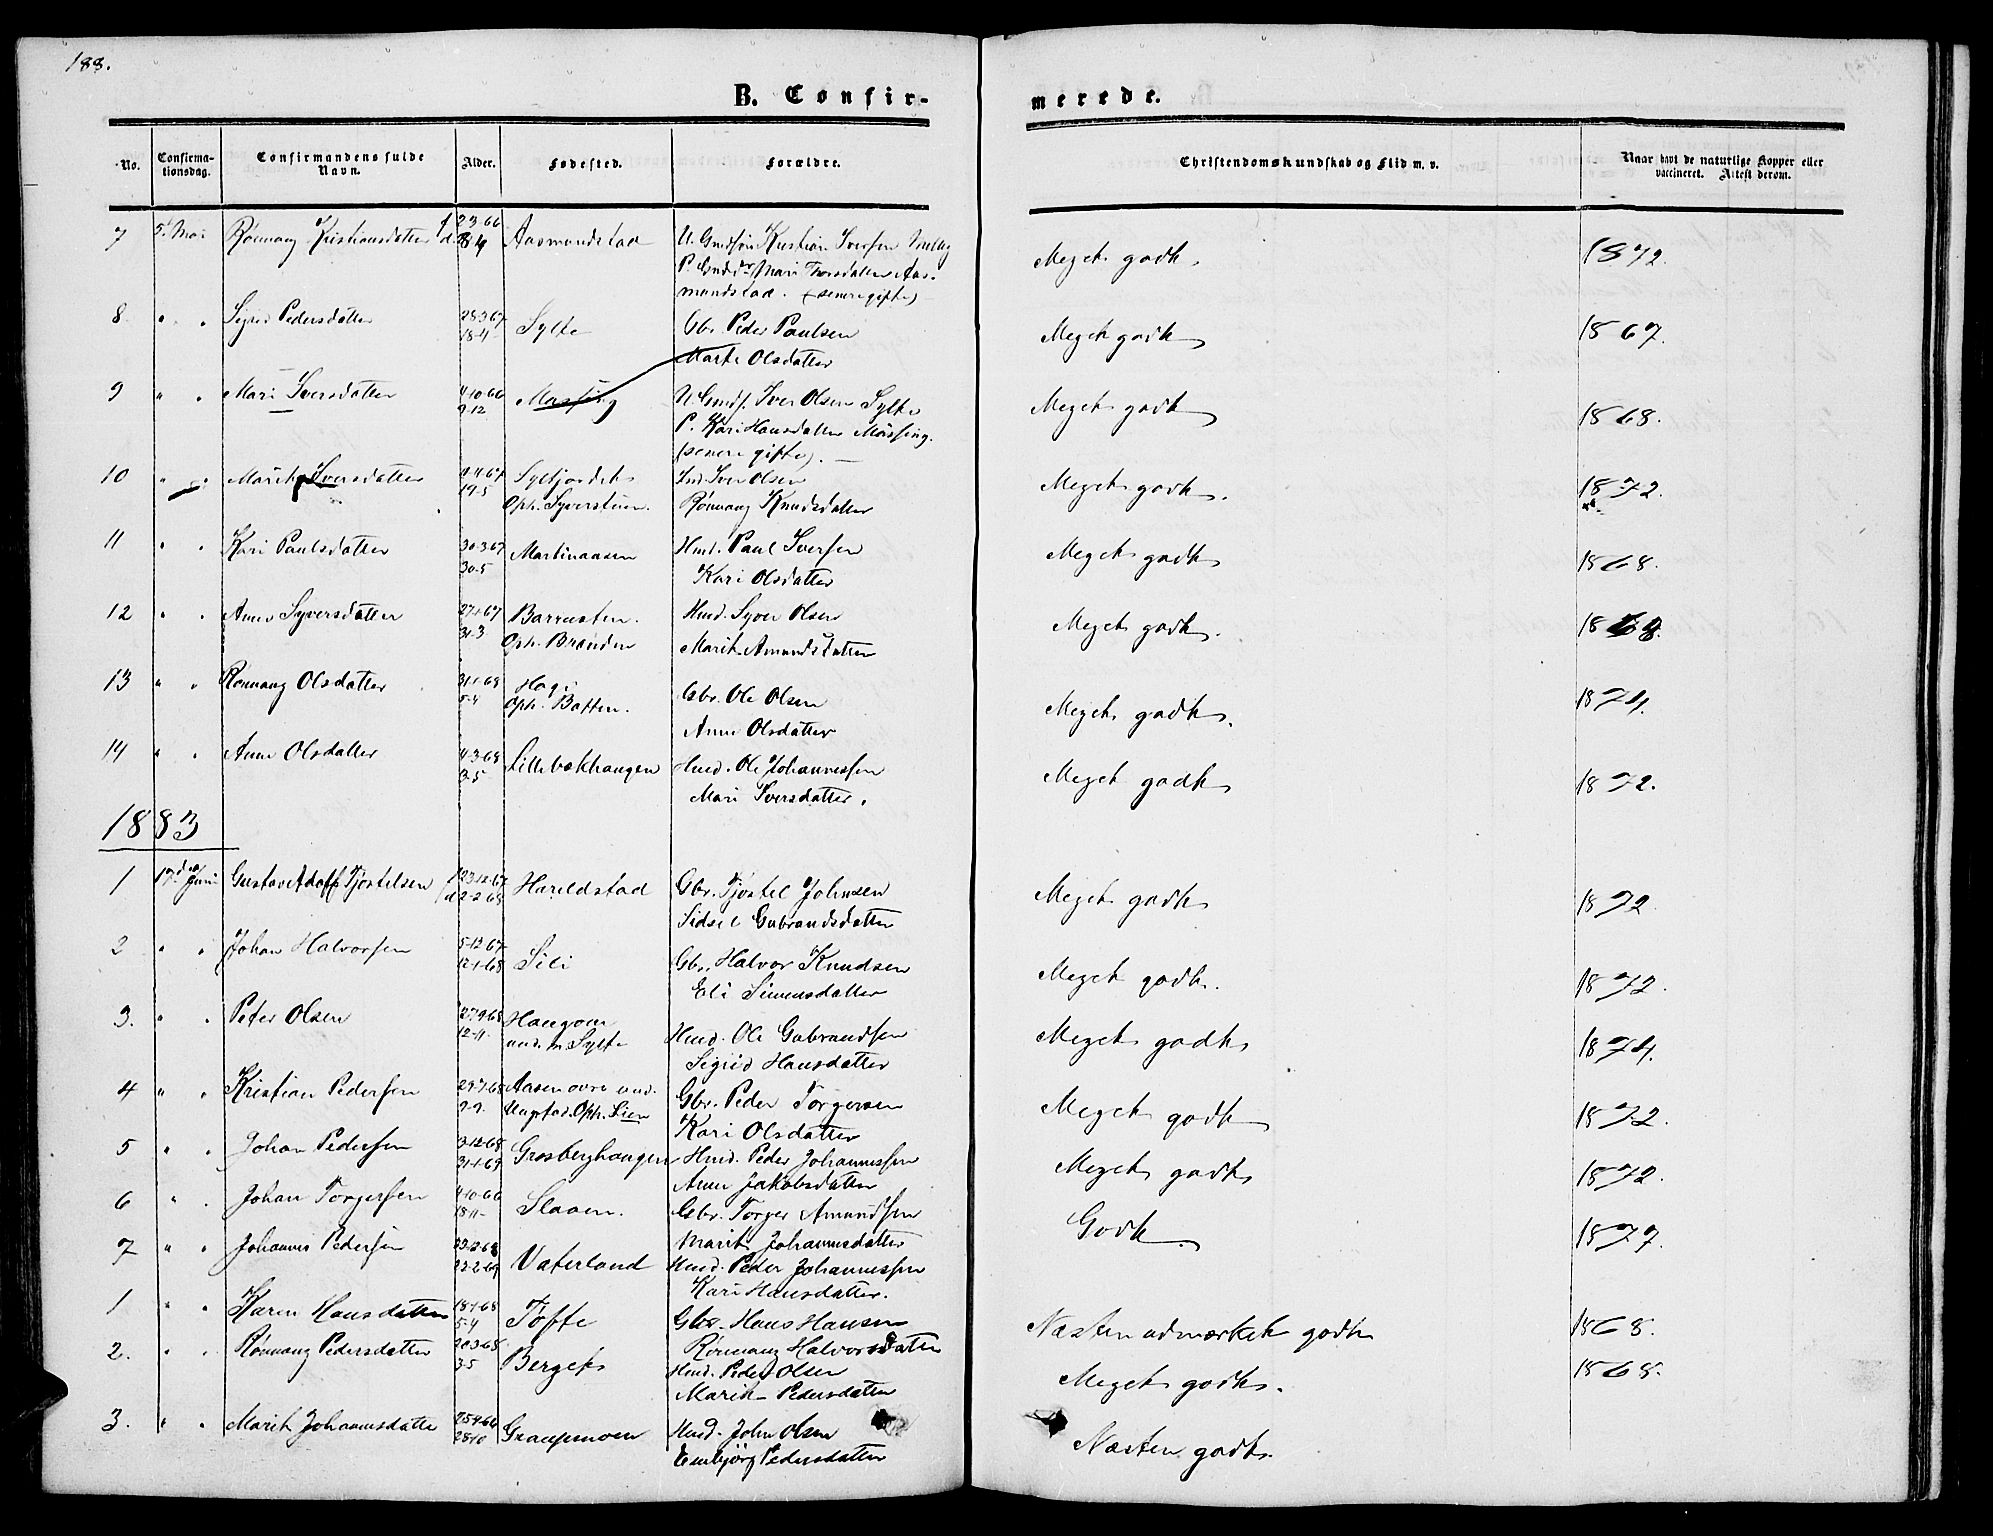 188.
B. Confirmerede.
No. Confirmationsdag. Confirmandens fulde Navn. Alder. Fødested. Forældre. Christendomskundskab og Flid m. v. Naar havt de naturlige Kopper eller vaccineret. Attest derom.
7 5. Mai Rønnaug Kristiansdatter Aasmundstad Kristian Iversen Meget godt 1872.
Mari Thorsdatter Aasmundstad. (senere gifte)
8 " " Sigrid Pedersdatter 28-3-67 18-4 Sylte Gbr. Peder Paulsen Meget godt 1867.
Marte Olsdatter
9 " " Mari Iversdatter 4-10-66 9-12 Massing U. Gmdf. Iver Olsen Sylte Meget godt 1868.
P. Kari Hansdatter Massing.
(senere gifte).
10 " " Marit Iversdatter 19-5 Syltjordet Ind. Iver Olsen Meget godt. 1872.
Oph. Syverstuen. Rønnaug Knudsdatter
11 " " Kari Paulsdatter 30-3-67 30-5 Martinaasen Hmd. Paul Iversen Meget godt 1868.
Kari Olsdatter
12 " " Anne Syversdatter 27-1-67 31-3 Barnesten. Hmd. Syver Olsen Meget godt. 1868.
Oph. Brænden Marit Amundsdatter
13 " " Rønnaug Olsdatter 31-1-68 5-4 Hage Gbr. Ole Olsen Meget godt. 1874.
Oph. Batten. Anne Olsdatter
14 " " Anne Olsdatter 4-3-68 3-5 Lillebækhaugen Hmd. Ole Johannesen Meget godt 1872.
Mari Iversdatter.
1883
1 17de Juni Gustav Adolf Tjøstelsen 23-12-67 2-2-68 Harildstad Gbr. Tjøstel Johnsen Meget godt 1872
Sidsel Gubrandsdatter
2 " " Johan Halvorsen 5-12-67 12-1-68 Sili Gbr. Halvor Knudsen Meget godt. 1872.
Eli Simensdatter
3. " " Peter Olsen 27-9-68 12-11 Haugom Hmd. Ole Gubrandsen Meget godt 1874.
und. Sylte Sigrid Hansdatter
4 " " Kristian Pedersen 29-7-68 9-9. Aasen øvre und. Gbr. Peder Torgersen Meget godt 1872.
Oph. Lien Kari Olsdatter
5 " " Johan Pedersen 3-12-68 31-1-69 Grosberghaugen Hmd. Peder Johannessen Meget godt 1872.
Anne Jakobsdatter
6 " . Johan Torgersen 4-10-66 18-11- Slaaen. Gbr. Torger Amundsen Godt 1877.
Marit Johannesdatter
7 " " Johannes Pedersen 22-2-69 Vaterland Hmd. Peder Johannessen
Kari Hansdatter.
1 " " Karen Hansdatter 18-1-68 5-4 Tofte Gbr. Hans Hansen Næsten udmærket godt 1868.
Rønnaug Halvorsdatter
2. " " Rønnaug Pedersdatter 20-3-68 3-5 Bergets Hmd. Peder Olsen Meget godt. 1868.
Marit Pedersdatter
3. " " Marit Johannesdatter 25-4-66 28-10 Graupmoen Hmd. John Olsen Næsten godt.
Embjørg Pedersdatter